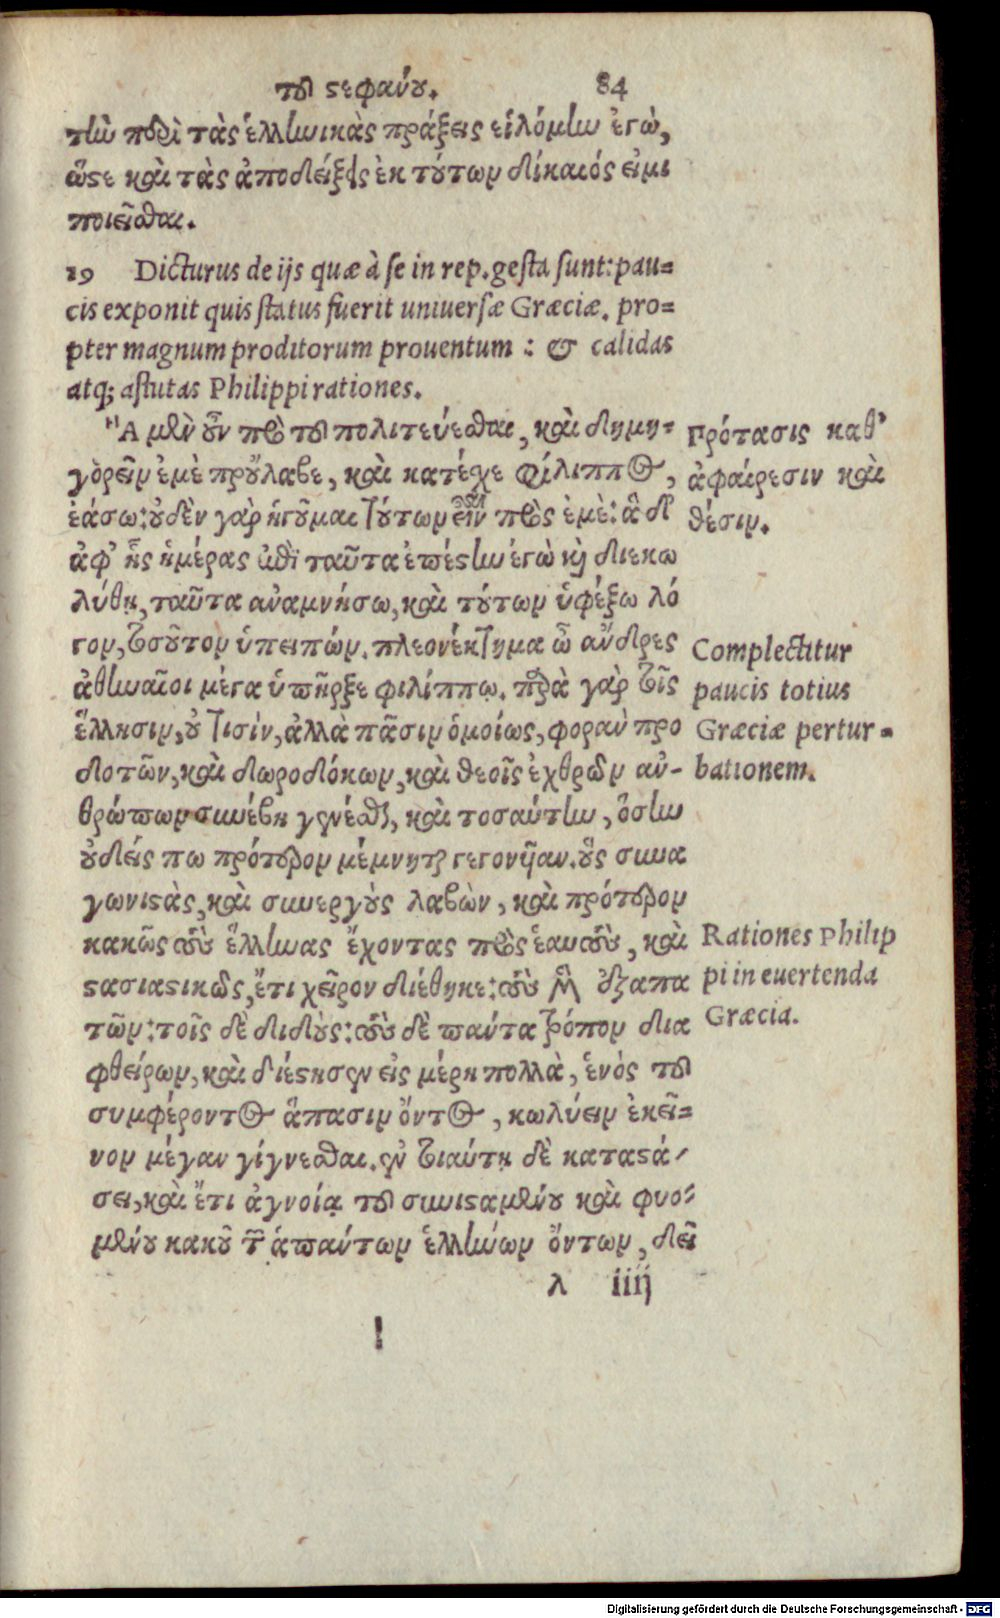 τοῦ στεφάνου. 84
τὴν περὶ τὰς ἑλληνικὰς πράξεις εἱλόμην ἐγὼ,
ὥστε καὶ τὰς ἀποδείξεις ἐκ τούτων δίκαιός εἰμι
ποιεῖσθαι.
19 Dicturus de ijs quæ à se in rep. gesta sunt: pau=
cis exponit quis status fuerit uniuersæ Græciæ. pro=
pter magnum proditorum prouentum : & calidas
atq; astutas Philippi rationes.
Ἃ μὲν οὖν πρὸ τοῦ πολιτεύεσθαι, καὶ δημη=
γορεῖν ἐμὲ προὔλαβε, καὶ κατέχε Φίλιππος,
ἐάσω: οὐδὲν γὰρ ἡγοῦμαι τούτων εἶναι πρὸς ἐμὲ: ἃ δ'
ἀφ' ἧς ἡμέρας ἐπὶ ταῦτα ἐπέστην ἐγὼ καὶ διεκω
λύθη, ταῦτα ἀναμνήσω, καὶ τούτων ὑφέξω λό
γον, τοσοῦτον ὑπειπών. πλεονέκτημα ὦ ἄνδρες
ἀθηναῖοι μέγα ὑπῆρξε φιλίππῳ. παρὰ γὰρ τοῖς
ἕλλησιν, οὐ τισὶν, ἀλλὰ πᾶσιν ὁμοίως, φορὰν προ
δοτῶν, καὶ δωροδόκων, καὶ θεοῖς ἐχθρῶν ἀν-
θρώπων συνέβη γενέσθαι, καὶ τοσαύτην, ὅσην
οὐδείς πω πρότερον μέμνηται γεγονῆαν. οὓς συνα
γωνιστὰς, καὶ συνεργοὺς λαβὼν, καὶ πρότερον
κακῶς τοὺς ἕλληνας ἔχοντας πρὸς ἑαυτοὺς, καὶ
στασιαστικῶς, ἔτι χεῖρον διέθηκε: τοὺς μὲν ἐξαπα
τῶν: τοῖς δὲ διδοὺς: τοὺς δὲ πάντα τρόπον δια
φθείρων, καὶ διέστησεν εἰς μέρη πολλὰ, ἑνὸς τοῦ
συμφέροντος ἅπασιν ὄντος, κωλύειν ἐκεῖ=
νον μέγαν γίγνεσθαι. ἐν τοιαύτῃ δὲ καταστά-
σει, καὶ ἔτι ἀγνοίᾳ τοῦ συνισταμένου καὶ φυο=
μένου κακοῦ τῶν ἁπάντων ἑλλήνων ὄντων, δεῖ
λ iiij
Πρότασις καθ'
ἀφαίρεσιν καὶ
θέσιν.
Complectitur
paucis totius
Græciæ pertur=
bationem.
Rationes Philip
pi in euertenda
Græcia.
Digitalisierung gefördert durch die Deutsche Forschungsgemeinschaft - DFG